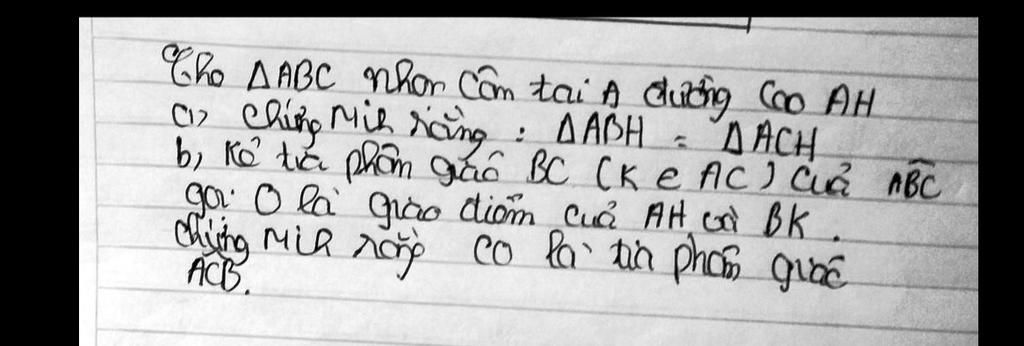 Cho ΔABC nhọn cân tại A đường cao AH
a) Chứng Minh rằng : ΔABH = ΔACH
b) Kẻ tia phân giác BC (K e AC) của ABC
gọi O là giao điểm của AH và BK .
Chứng Minh rằng CO là tia phân giác
ACB.